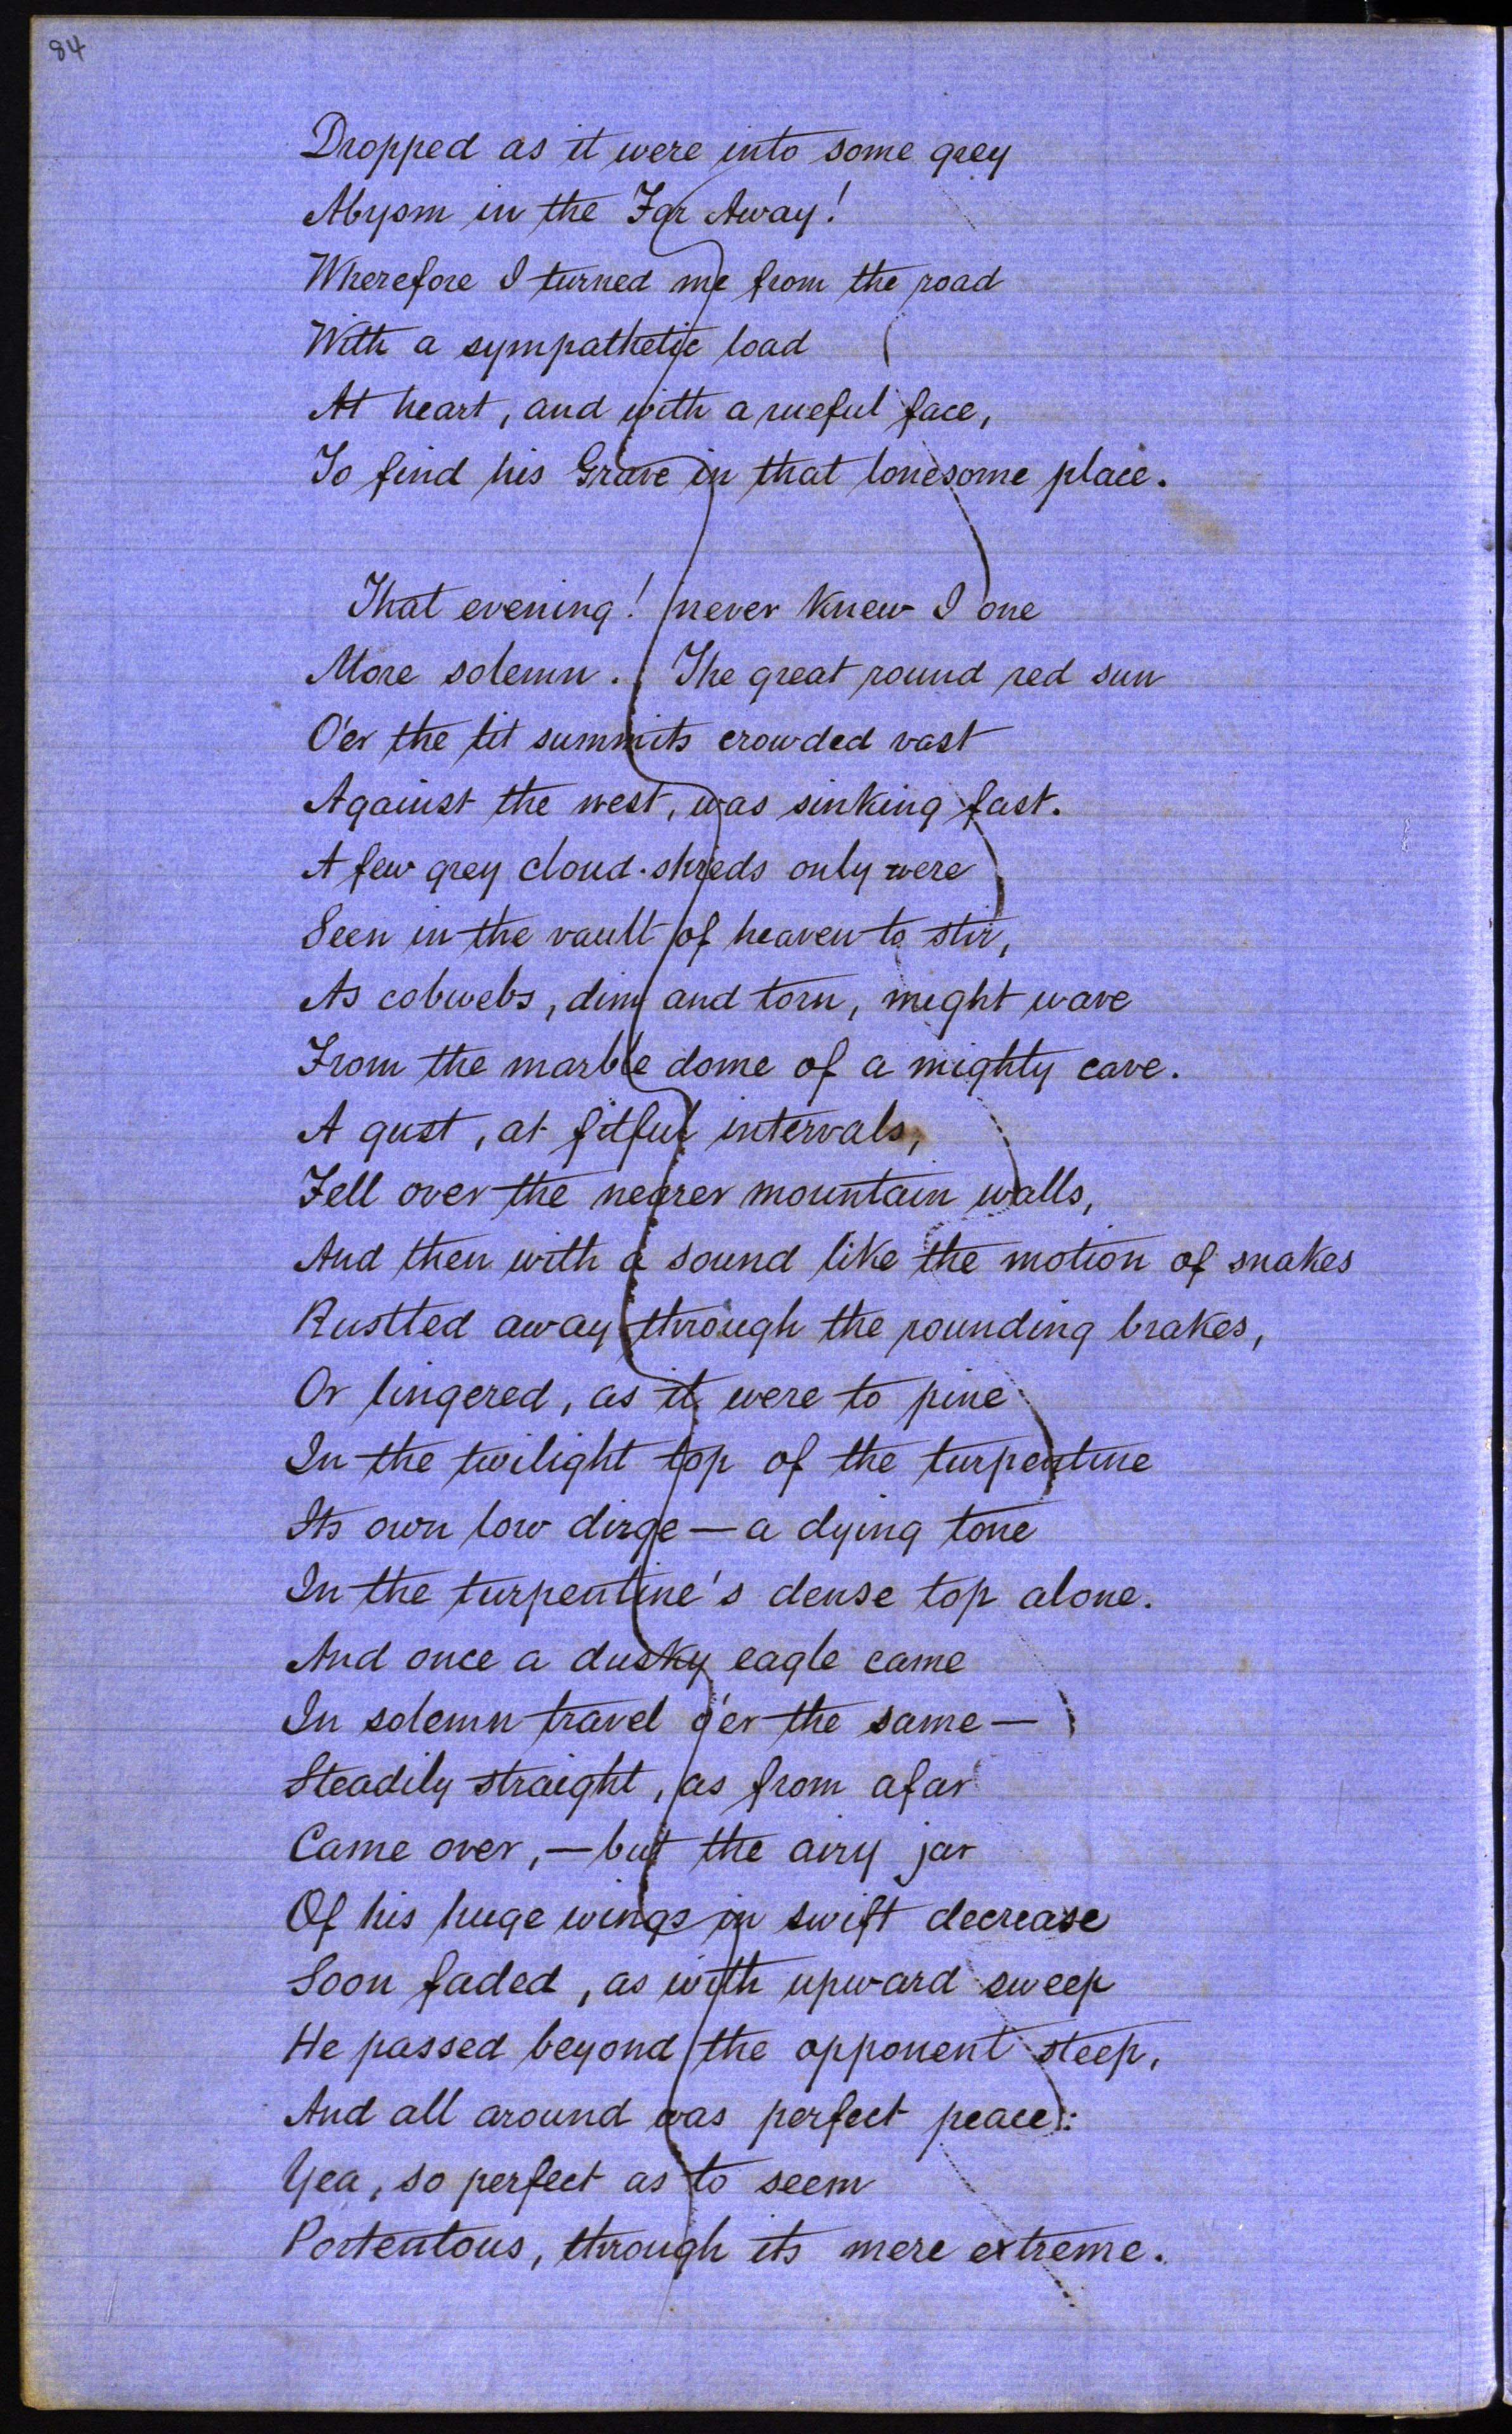 84
Dropped as it were into some grey
Abysm in the Far Away!
Wherefore I turned me from the road
With a sympathetic load
At heart, and with a rueful face,
To find his Grave in that lonesome place.
That evening! never knew I one
More solemn. The great round red sun
O'er the lit summits crowded vast
Against the west, was sinking fast.
A few grey cloud-shreds only were
Seen in the vault of heaven to stir,
As cobwebs, dim and torn, might wave
From the marble dome of a mighty cave.
A gust, at fitful intervals,
Fell over the nearer mountain walls,
And then with a sound like the motion of snakes
Rustled away through the rounding brakes,
Or lingered, as it were to pine
In the twilight top of the turpentine
Its own low dirge — a dying tone
In the turpentine's dense top alone.
And once a dusky eagle came
In solemn travel o'er the same —
Steadily straight, as from afar
Came over, — but the airy jar
Of his huge wings in swift decrease
Soon faded, as with upward sweep
He passed beyond the opponent steep,
And all around was perfect peace:
Yea, so perfect as to seem
Portentous, through its mere extreme.